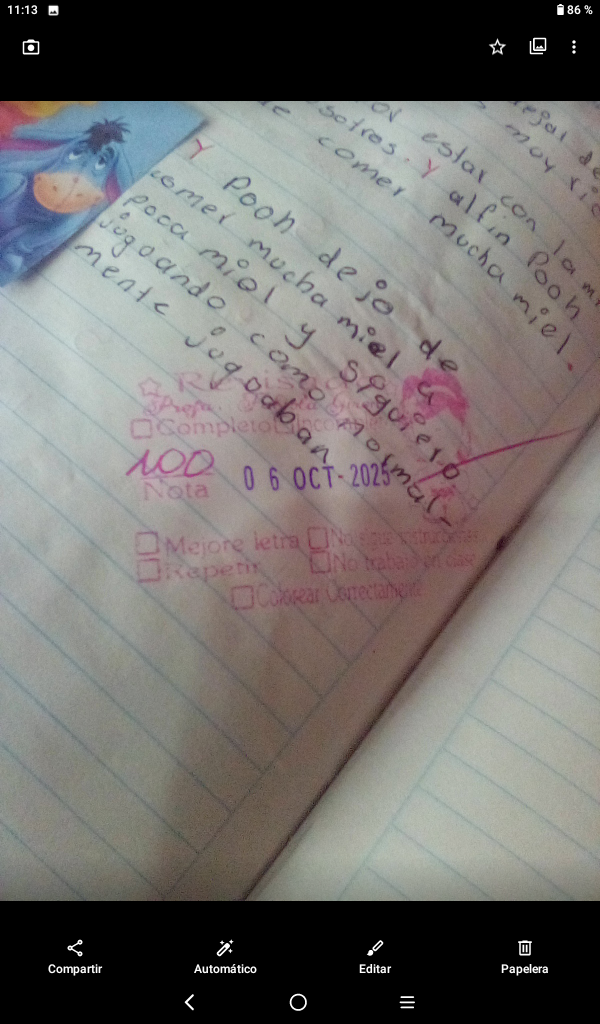 11:13
86 %
estar con la
muy
sotros. Y alfin Pooh
de comer mucha miel.
Y Pooh dejo de
comer mucha miel a
poca miel y siguiero
jugando como normal-
mente jugaban
Revisado
Completo Incompleto
100
Nota
06 OCT 2025
Mejore letra No sigue instrucciones
Repetir No trabajo en clase
Colorear Correctamente
Compartir
Automático
Editar
Papelera